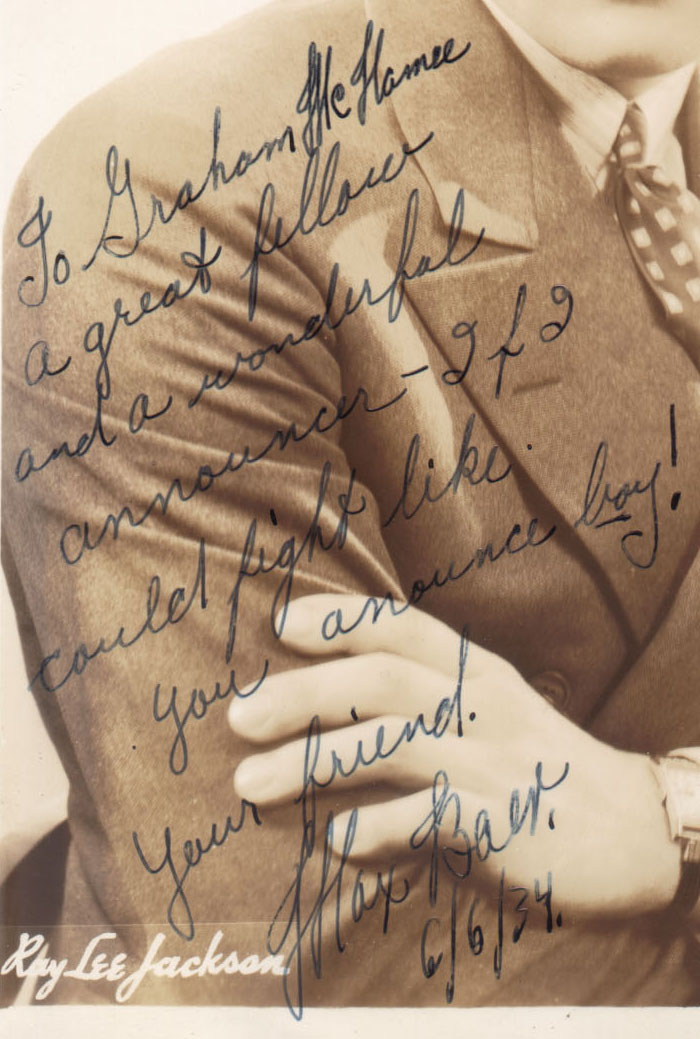 To Graham McNamee
a great fellow
and a wonderful
announcer - I f I
could fight like
you anounce boy!
Your friend.
Max Baer.
6/6/34.
Ray Lee Jackson